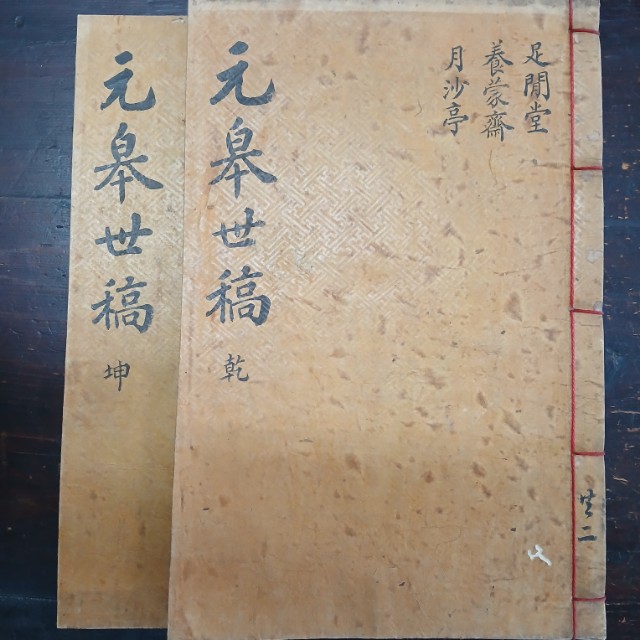 足閒堂
養蒙齋
月沙亭
元皐世稿
乾
共二
元皐世稿
坤